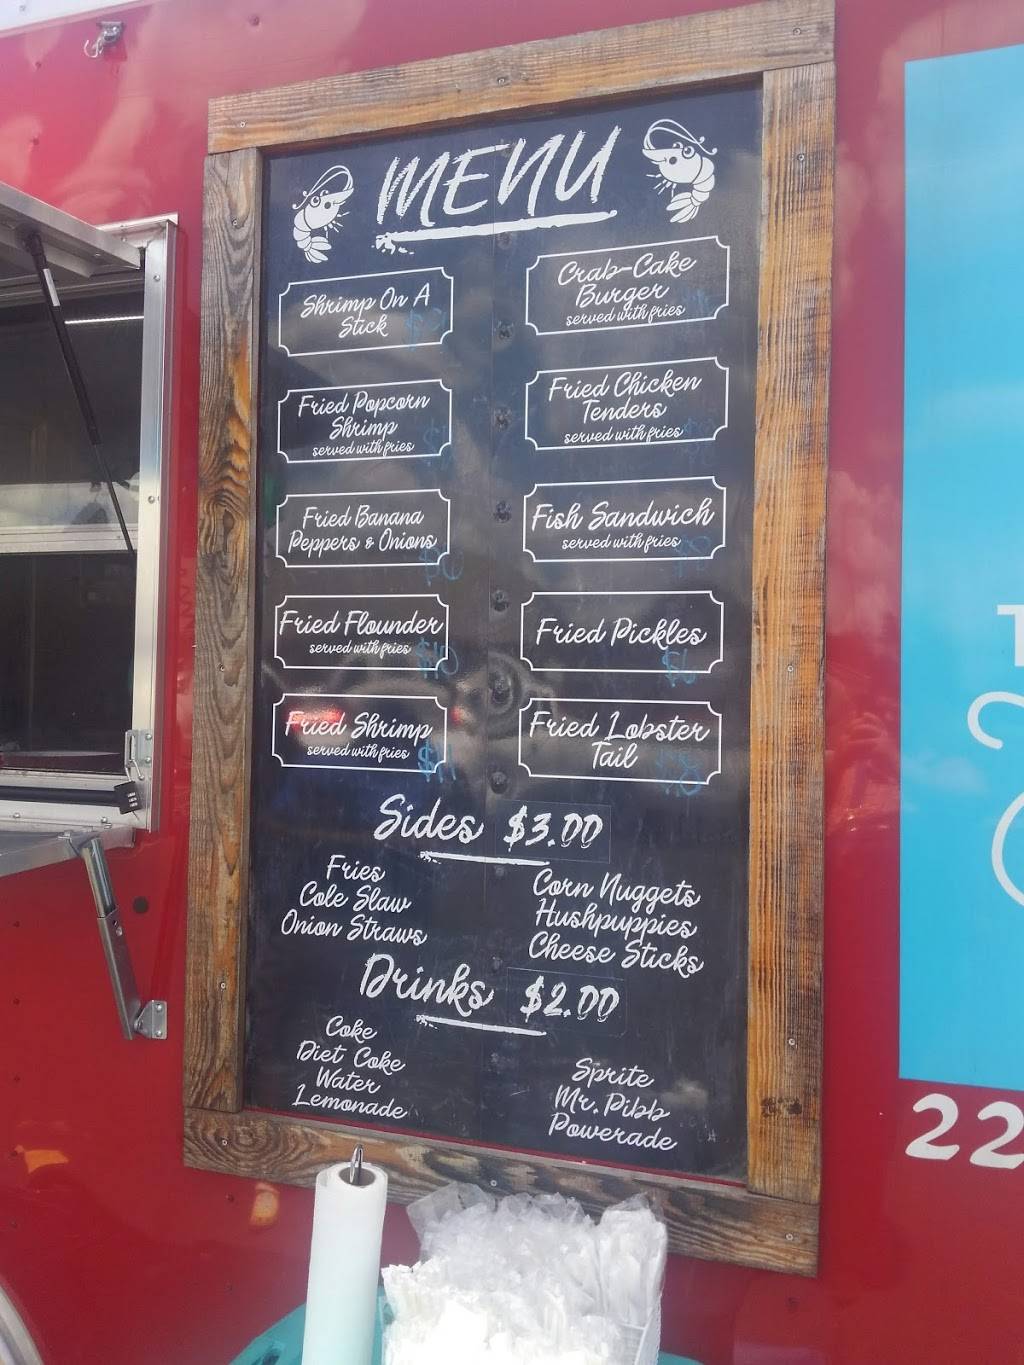 MENU
Shrimp On A
Stick
Fried Popcorn
Shrimp
served with fries
Fried Banana
Peppers & Onions
$6
Fried Flounder
served with fries
$10
Fried Shrimp
served with fries
$11
Crab-Cake
Burger
served with fries
Fried Chicken
Tenders
served with fries
Fish Sandwich
served with fries
Fried Pickles
$6
Fried Lobster
Tail
Sides $3.00
Fries
Cole Slaw
Onion Straws
Corn Nuggets
Hushpuppies
Cheese Sticks
Drinks $2.00
Coke
Diet Coke
Water
Lemonade
Sprite
Mr. Pibb
Powerade
22